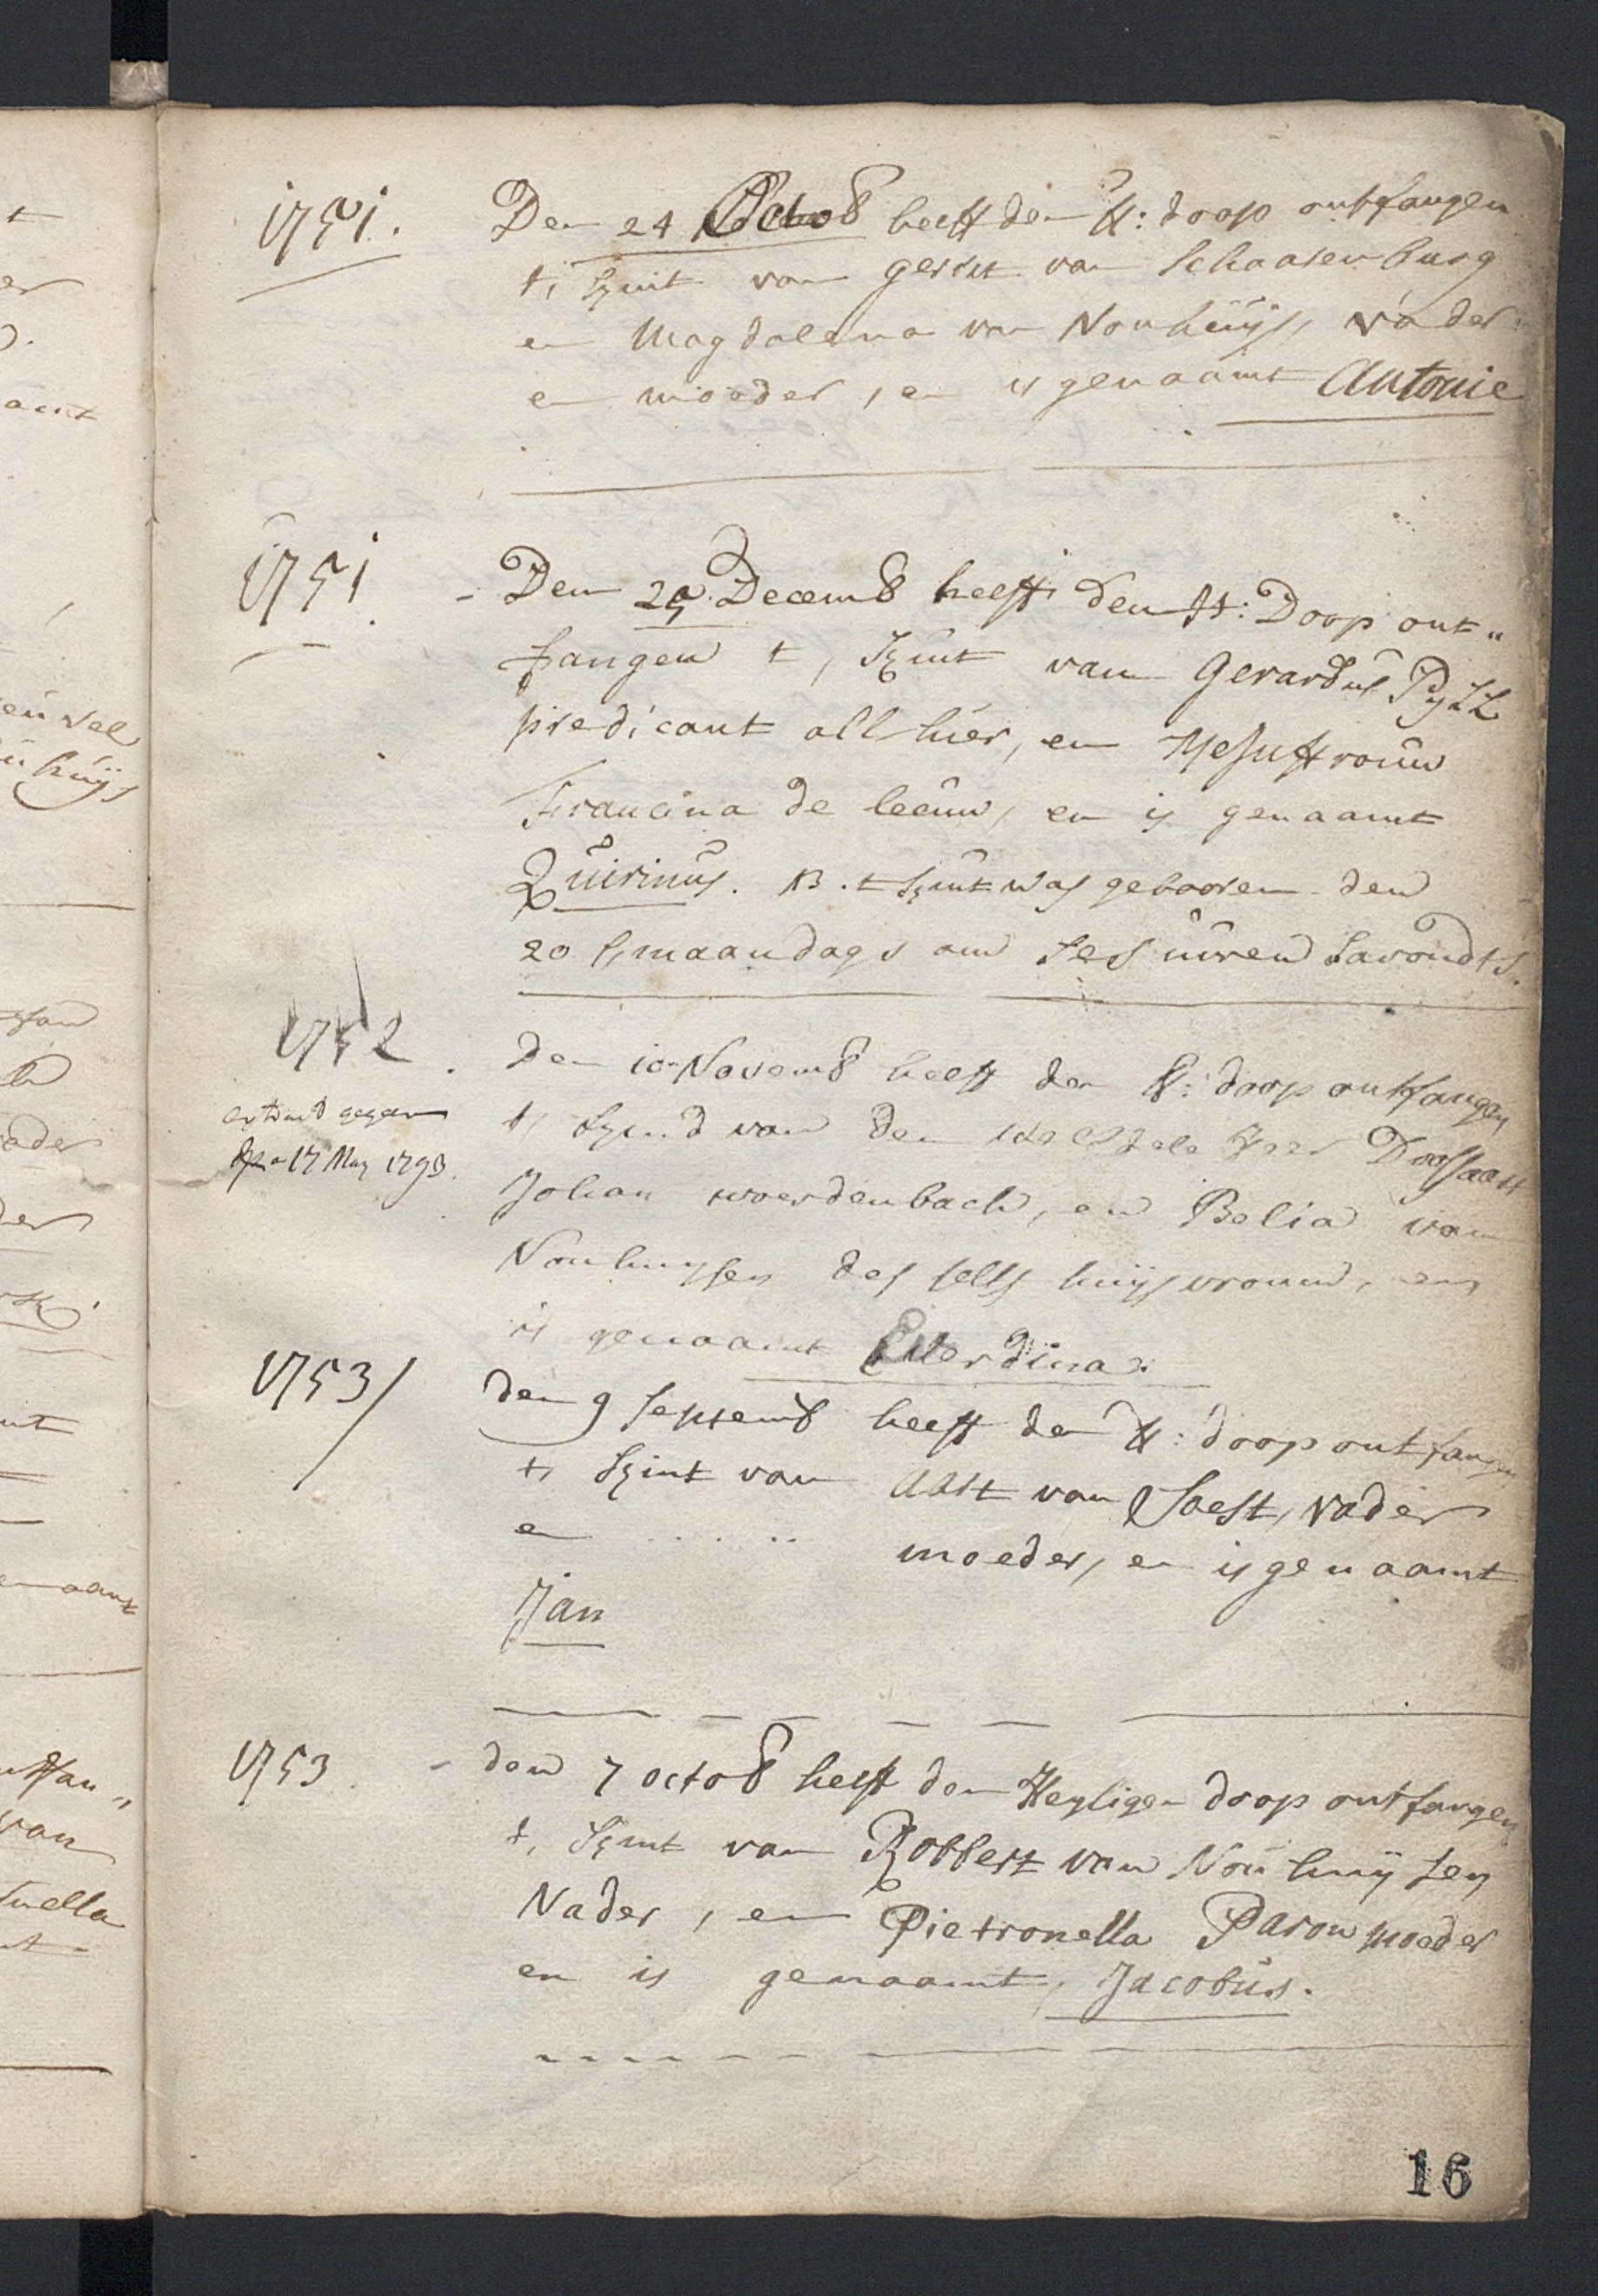 1751.
Den 24 Octob heeft den H: doop ontfangen
t, kint van gerrit van Schaarenburg
en Magdalena van Nouhuijs, vader
en moeder, en is genaamt Antonie
1751
Den 25 Decemb heeft den H: Doop ont„
fangen t, kint van Gerardus
predicant all hier, en Mejuffrouw
Francina de leeuw, en is genaamt
Quirinus. NB. t kint was gebooren den
20 s, maandags om ses uuren savondts.
1752.
Den 10 Novemb heeft den H: doop ontfangen
t, kind van den Wel Edele Heer Drossaert
Johan woerdenbach, en Belia van
Nouhuysen des selfs huijsvrouw, en
is genaamt Everdina:
extract gegeven
17 May 1793.
1753/
den 9 septemb heeft den H: doop ontfangen
t, kint van Aart van Soest, vader
en ..... moeder, en is genaamt
Jan
1753.
den 7 octob heeft den Heyligen doop ontfangen
t, kint van Robbert van Nouhuijsen
Vader, en Pietronella Paron moeder
en is genaamt, Jacobus.
16